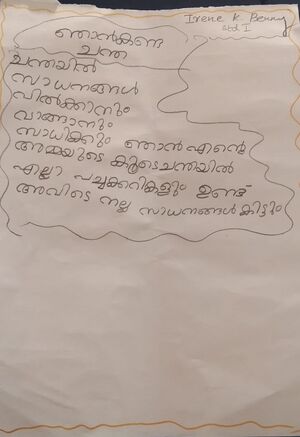 Irene K Benny
std I
ഞാൻകണ്ട
ചന്ത
ചന്തയിൽ
സാധനങ്ങൾ
വിൽക്കാനും
വാങ്ങാനും
സാധിക്കും ഞാൻ എന്റെ
അമ്മയുടെ കൂടെചന്തയിൽ
എല്ലാ പച്ചക്കറികളും ഉണ്ട്
അവിടെ നല്ല സാധനങ്ങൾ കിട്ടും